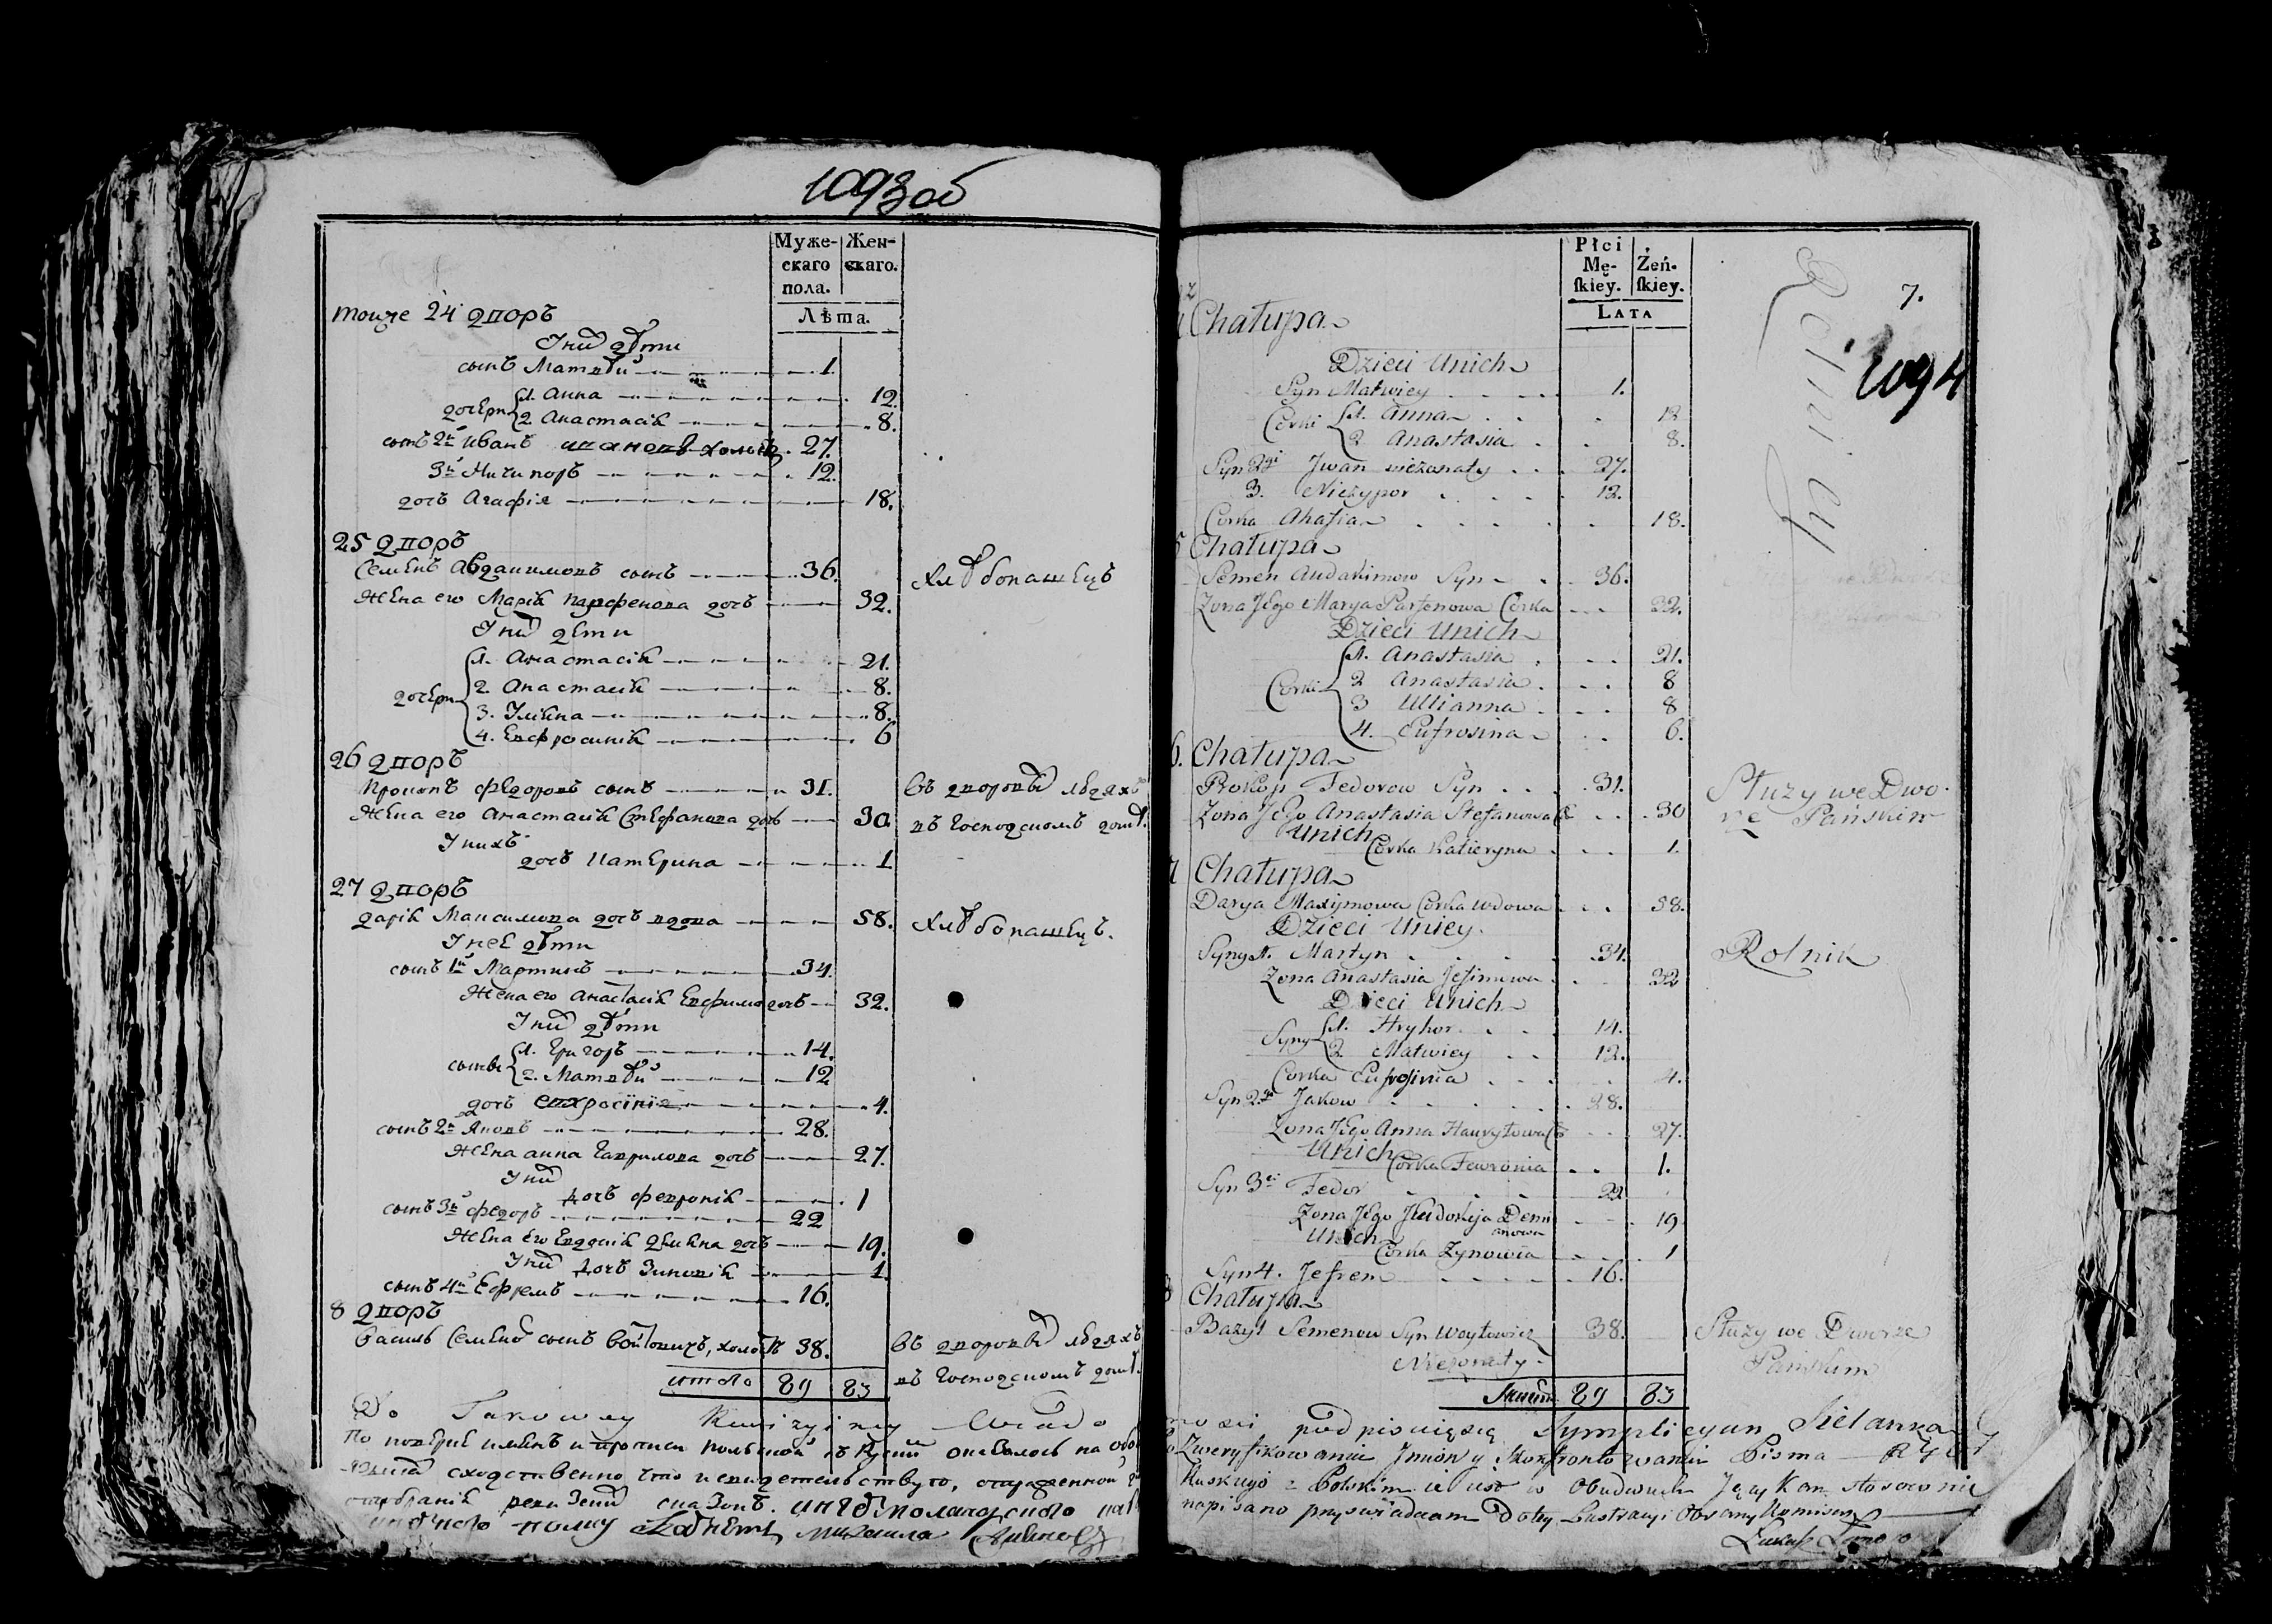 1093 об
Муже-
скаго
пола.
Жен-
скаго.
Лѣта.
тогже 24 дворъ
У нихъ дѣти
сынъ Матвѣй 1.
дочери 1. Анна 12.
2. Анастасія 8.
сынъ 2й Иванъ холостъ 27.
3й Ничипоръ 12.
дочь Агафія 18.
25 дворъ
Семенъ Авдакимовъ сынъ 36. Хлѣбопашецъ
Жена его Марія Парфенова дочь 32.
У нихъ дети
дочери 1. Анастасія 21.
2. Анастасія 8.
3. Уліяна 8.
4. Евфросинія 6
26 дворъ
Прокопъ Федоровъ сынъ 31. Въ дворовыхъ людяхъ
Жена его Анастасія Стефанова дочь 30 въ Господскомъ домѣ.
У нихъ
дочь Катерина 1
27 дворъ
Дарія Максимова дочь вдова 58. Хлѣбопашецъ.
У неё дѣти
сынъ 1й Мартинъ 34.
Жена его Анастасія Евфимо дочь 32.
У нихъ дѣти
сыны 1. Григоръ 14.
2. Матвѣй 12
дочь Евхросінія 4.
сынъ 2й Яковъ 28.
Жена Анна Гаврилова дочь 27.
У нихъ
дочь Февронія 1
сынъ 3й Федоръ 22
Жена его Евдокія дочь 19.
У нихъ дочь Зиновія 1
сынъ 4й Ефремъ 16.
8 дворъ
Василь Семенов сынъ Войтовичъ, холостъ 38. Въ дворовыхъ людяхъ
въ Господскомъ домѣ.
итого 89 83
Do Takowey
По
сходственно, что и свидетельствую,
7.
1094
Płci
Mę-
skiey.
Żeń-
skiey.
LATA
Chałupa
Rolnik
Dzieci Unich
Syn Matwiey 1.
Corki 1. Anna 12
2 Anastasia 8.
Syn 2gi Jwan nieżonaty 27.
3. Niczypor 12.
Corka Ahafia 18.
Chałupa
Semen Audakimow Syn 36.
Zona Jego Marya Parfenowa Corka 32.
Dzieci Unich
Corki 1. Anastasia 21.
2 Anastasia 8
3 Ullianna 8
4. Eufrosina 6.
6. Chałupa
Prokop Fedorow Syn 31. Służy we Dwo-
Zona Jego Anastasia Stefanowa C 30 rze Pańskim
Unich
Corka Katieryna 1.
7 Chałupa
Darya Maxymowa Corka Wdowa 58.
Dzieci Uniey.
Syny 1. Martyn 34. Rolnik
Zona Anastasia Jefimowa 32
Dzieci Unich
Syny 1. Hryhor 14.
2 Matwiey 12.
Corka Eufrosinia 4.
Syn 2gi Jakow 28.
Zona Jego Anna Hauryłowa C 27.
Unich
Corka Fewronia 1.
Syn 3ci Fedor 22
Zona Jego Jeudokija Demi
anowa 19
Unich
Corka Zynowia 1
Syn 4. Jefrem 16.
8 Chałupa
Bazyl Semenow Syn Woytowicz 38. Służy we Dworze
Nieżonaty Pańskim
Summa 89 83
podpisuię się Symplicyan
Zweryfikowaniu Jmion y Skonfrontowaniu Pisma
Ruskiego z Polskim iż iest w Obudwuch Językan stosownie
napisano przyświadczam